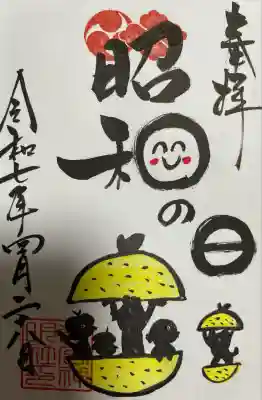 奉拝
昭和の日
令和七年四月二六日